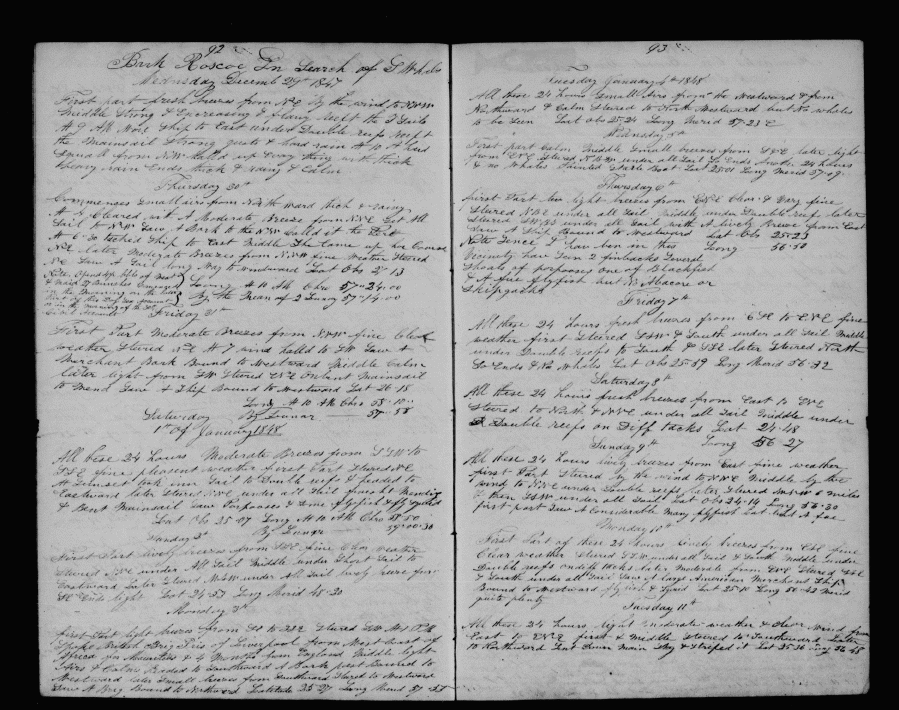 92
Bark Roscoe In Search of S Whales
Wednesday Decemb 29th 1847
First part fresh breezes from NE By the wind to NWW
Middle Strong & Encreasing & flawy reeft the T Sails
At 9 AM Wore Ship to East under Double reefs reeft
the Mainsail Strong gusts & hard rain At 10 A hard
Squall from NW halld up Every thing with thick
heavy rain Ends thick & rainy & Calm
Thursday 30th
Commences Small airs from North ward thick & rainy
At Cleared with A Moderate Breeze from NNE Set All
Sail to NW Saw A Bark to the NW
At Tacked Ship to East Middle Came up
NE later Moderate Breezes from NNW fine Weather Steered
NE Saw A Sail long Way to Windward Lat Obs 27 13
Long At 10 Ah Chro 57-24.00
By the Mean of 2 Lunars 57-14.00
Friday 31st
First Part Moderate Breezes from NNW fine Clear
weather Steered NE At 7 wind halld to SW Saw A
Merchant Bark Bound to Westward Middle Calm
later light from SW Steered ESE Onbent Mainsail
to Mend Saw A Ship Bound to Westward Lat 26-15
Long At 10 Ah Chro 58-10
By Lunar 57-58
Saturday
1st Of January 1848
All these 24 hours Moderate Breezes from SSW to
SSE fine pleasent weather first Part Steered NE
At Sunset took in Sail to Double reefs & headed to
Eastward later Steered NNE under all Sail
& Bent Mainsail Saw Porpoises & Some flyfish
Lat Obs 25-07 Long At 10 Ah Chro 58 50
By Lunar 59-00-30
Sunday 2d
First Part lively breezes from SSE fine Clear weather
Steered NNE under All Sail Middle under Short Sail to
Eastward later Steered NNW under All Sail
SE Ends light Lat 24-53 Long Merid 48-30
Monday 3d
first Part light breezes from SE to SSE Steered SW
Spoke British Brig Pris of Liverpool from West Coast of
Africa & 4 Months from England Middle light
Airs & Calms headed to Southward A Bark past Bound to
Westward later Small breezes from Southward Steered to Westward
Saw A Brig Bound to Northward Latitude 25-27 Long Merid 57-53
93
Tuesday January 4th 1848
All these 24 hours Small Airs from the Westward & from
Northward & Calm Steered to North Westward but No whales
to be Seen Lat Obs 25-24 Long Merid 57-23
Wednesday 5th
First part Calm Middle Small breezes from SSE later light
from ESE Steered NBW under all Sail So Ends Another 24 hours
& no Whales Painted Boat Lat 25-01 Long Merid 57-09
Thursday 6th
first Part very light breezes from ESE Clear & Very fine
Steered NBE under all Sail Middle under Double reefs later
Steered under All Sail with A lively Breeze from East
Saw A Ship Bound to Westward Lat Obs 25-23
Note Sence I have ben in this Long 56-50
Vicinity have Seen 2 finbacks Several
Shoals of porpoises one of Blackfish
& A fine flyfish but No Albacore or
Skipjacks
Friday 7th
All these 24 hours fresh breezes from ESE to ENE fine
weather first Steered SSW & South under all Sail Middle
under Double reefs to South & SSE later Steered North
So Ends & No Whales Lat Obs 25-39 Long Merid 56-32
Saturday 8th
All these 24 hours fresh breezes from East to ENE
Steered to North & NNE under all Sail Middle under
Double reefs on Diff tacks Lat 24-48
Sunday 9th Long 56-27
All these 24 hours lively breezes from East fine weather
first Part Steered by the wind to NNE Middle by the
wind to NNE under Double reefs later Steered 6 miles
& then SSW under all Sail Lat Obs 24-14 Long 56-30
first part Saw A Considerable Many flyfish
Monday 10th
First Part of these 24 hours lively breezes from ESE fine
Clear weather Steered SSW under all Sail & South Middle under
Double reefs on diff tacks later Moderate from ENE Steered SSE
& South under all Sail Saw A large American Merchant Ship
Bound to Westward flyfish & Squid Lat 25-10 Long 56-43 Merid
quite plenty
Tuesday 11th
All these 24 hours light & moderate weather & Clear Wind from
East to ENE first & Middle Steered to Southward Later
to Northward Sent Down Main Sky & Striped it Lat 25-36 Long 56-45